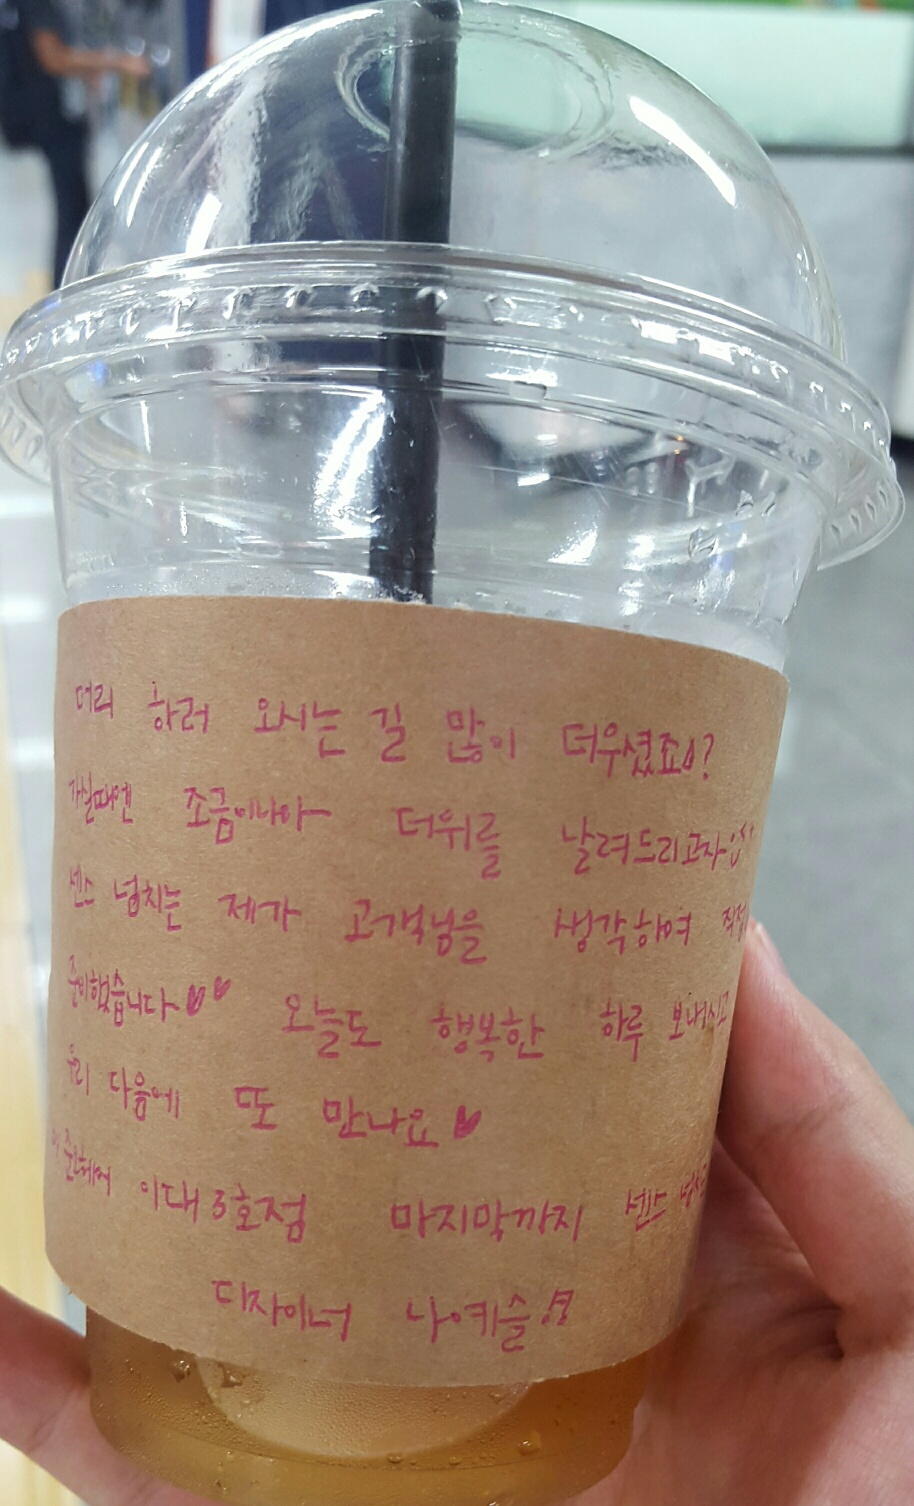 머리 하러 오시는 길 많이 더우셨죠?
가실때엔 조금이나마 더위를 날려드리고자
센스 넘치는 제가 고객님을 생각하여 직접
준비했습니다♥♥ 오늘도 행복한 하루 보내시고
우리 다음에 또 만나요♥
준헤어 이대 3호점 마지막까지 센스
디자이너